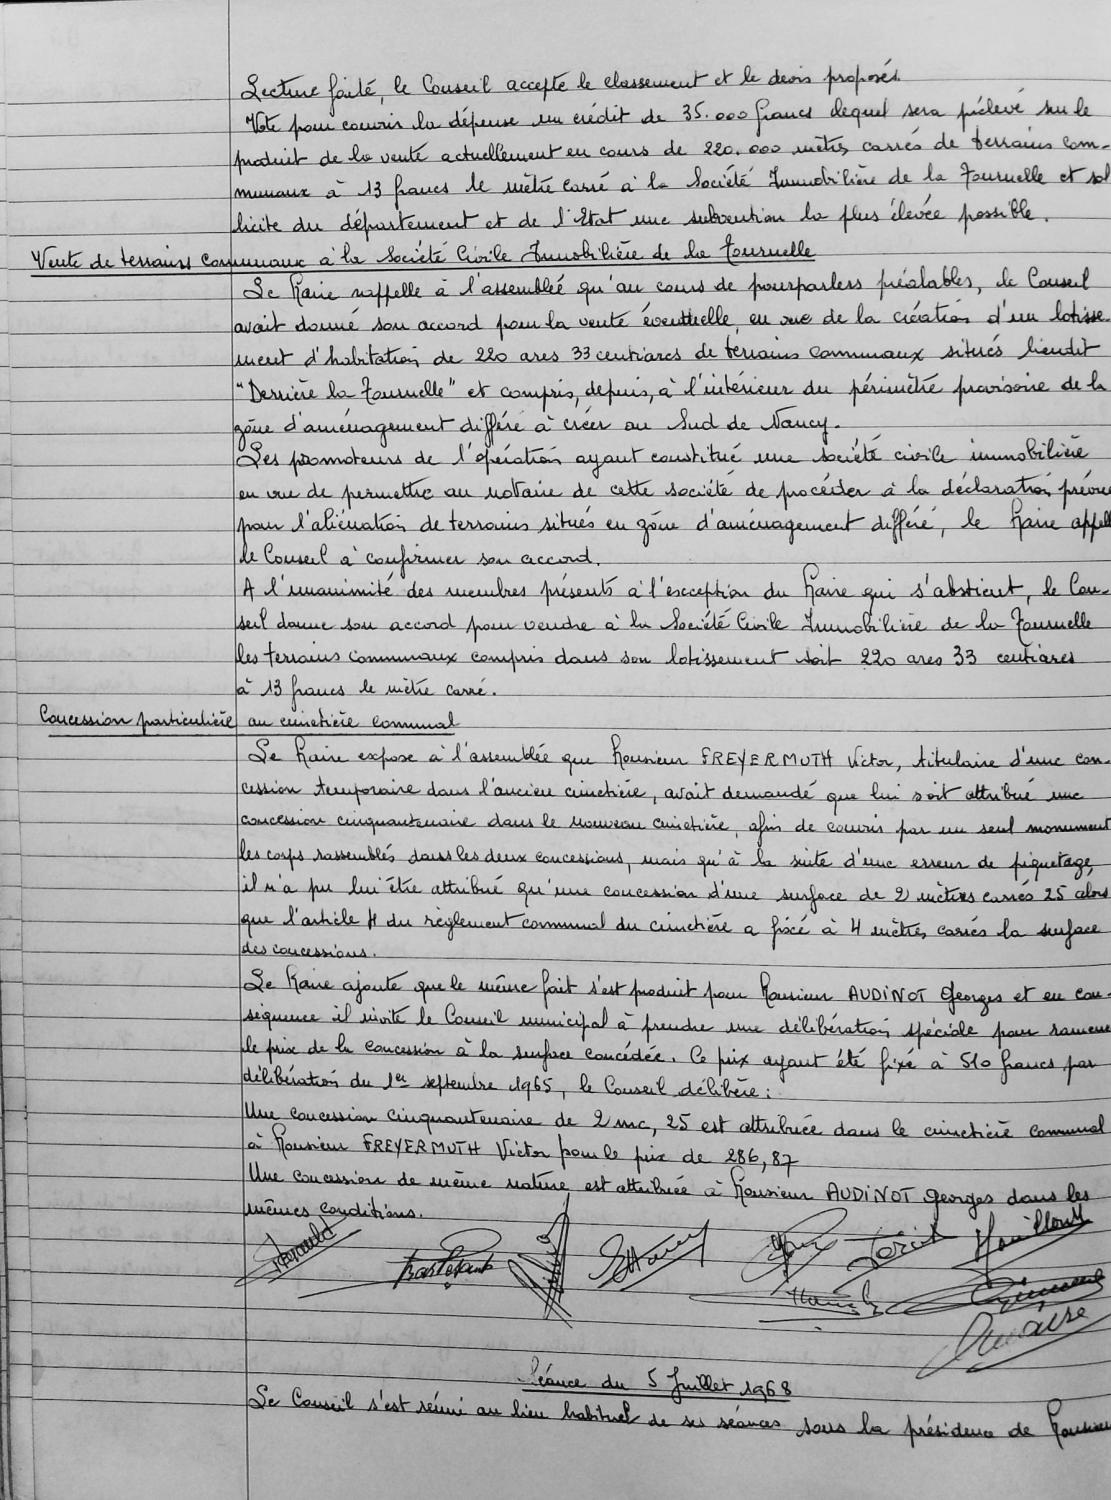 Lecture faite, le Conseil accepte le classement et le devis proposés.
Vote pour couvrir la dépense un crédit de 35.000 francs lequel sera prélevé sur le
produit de la vente actuellement en cours de 220.000 mètres carrés de terrains com-
munaux à 13 francs le mètre carré à la Société Immobilière de la Tournelle et sol
licite du département et de l'Etat une subvention la plus élevée possible.
Vente de terrains communaux à la Société Civile Immobilière de la Tournelle
Le Maire rappelle à l'assemblée qu'au cours de pourparlers préalables, le Conseil
avait donné son accord pour la vente éventuelle, en vue de la création d'un lotisse-
ment d'habitation de 220 ares 33 centiares de terrains communaux situés lieudit
"Derrière la Tournelle" et compris, depuis, à l'intérieur du périmètre provisoire de la
zône d'aménagement différé à créer au Sud de Nancy.
Les promoteurs de l'opération ayant constitué une société civile immobilière
en vue de permettre au notaire de cette société de procéder à la déclaration prévue
pour l'aliénation de terrains situés en zône d'aménagement différé, le Maire appelle
le Conseil à confirmer son accord.
A l'unanimité des membres présents à l'exception du Maire qui s'abstient, le Con-
seil donne son accord pour vendre à la Société Civile Immobilière de la Tournelle
les terrains communaux compris dans son lotissement soit 220 ares 33 centiares
à 13 francs le mètre carré.
Concession particulière au cimetière communal
Le Maire expose à l'assemblée que Monsieur FREYERMUTH Victor, titulaire d'une con-
cession temporaire dans l'ancien cimetière, avait demandé que lui soit attribué une
concession cinquantenaire dans le nouveau cimetière, afin de couvrir par un seul monument
les corps rassemblés dans les deux concessions, mais qu'à la suite d'une erreur de piquetage,
il n'a pu lui être attribué qu'une concession d'une surface de 2 mètres carrés 25 alors
que l'article 4 du règlement communal du cimetière a fixé à 4 mètres carrés la surface
des concessions.
Le Maire ajoute que le même fait s'est produit pour Monsieur AUDINOT Georges et en con-
séquence il invite le Conseil municipal à prendre une délibération spéciale pour ramener
le prix de la concession à la surface concédée. Ce prix ayant été fixé à 510 francs par
délibération du 1er septembre 1965, le Conseil délibère :
Une concession cinquantenaire de 2 mc, 25 est attribuée dans le cimetière communal
à Monsieur FREYERMUTH Victor pour le prix de 286,87
Une concession de même nature est attribuée à Monsieur AUDINOT Georges dans les
mêmes conditions.
Séance du 5 Juillet 1968
Le Conseil s'est réuni au lieu habituel de ses séances sous la présidence de Monsieur